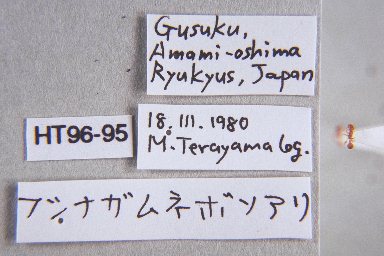 Gusuku,
Amami-oshima
Ryukyus, Japan
HT96-95
18.III.1980
M.Terayama leg.
フシナガムネボソアリ